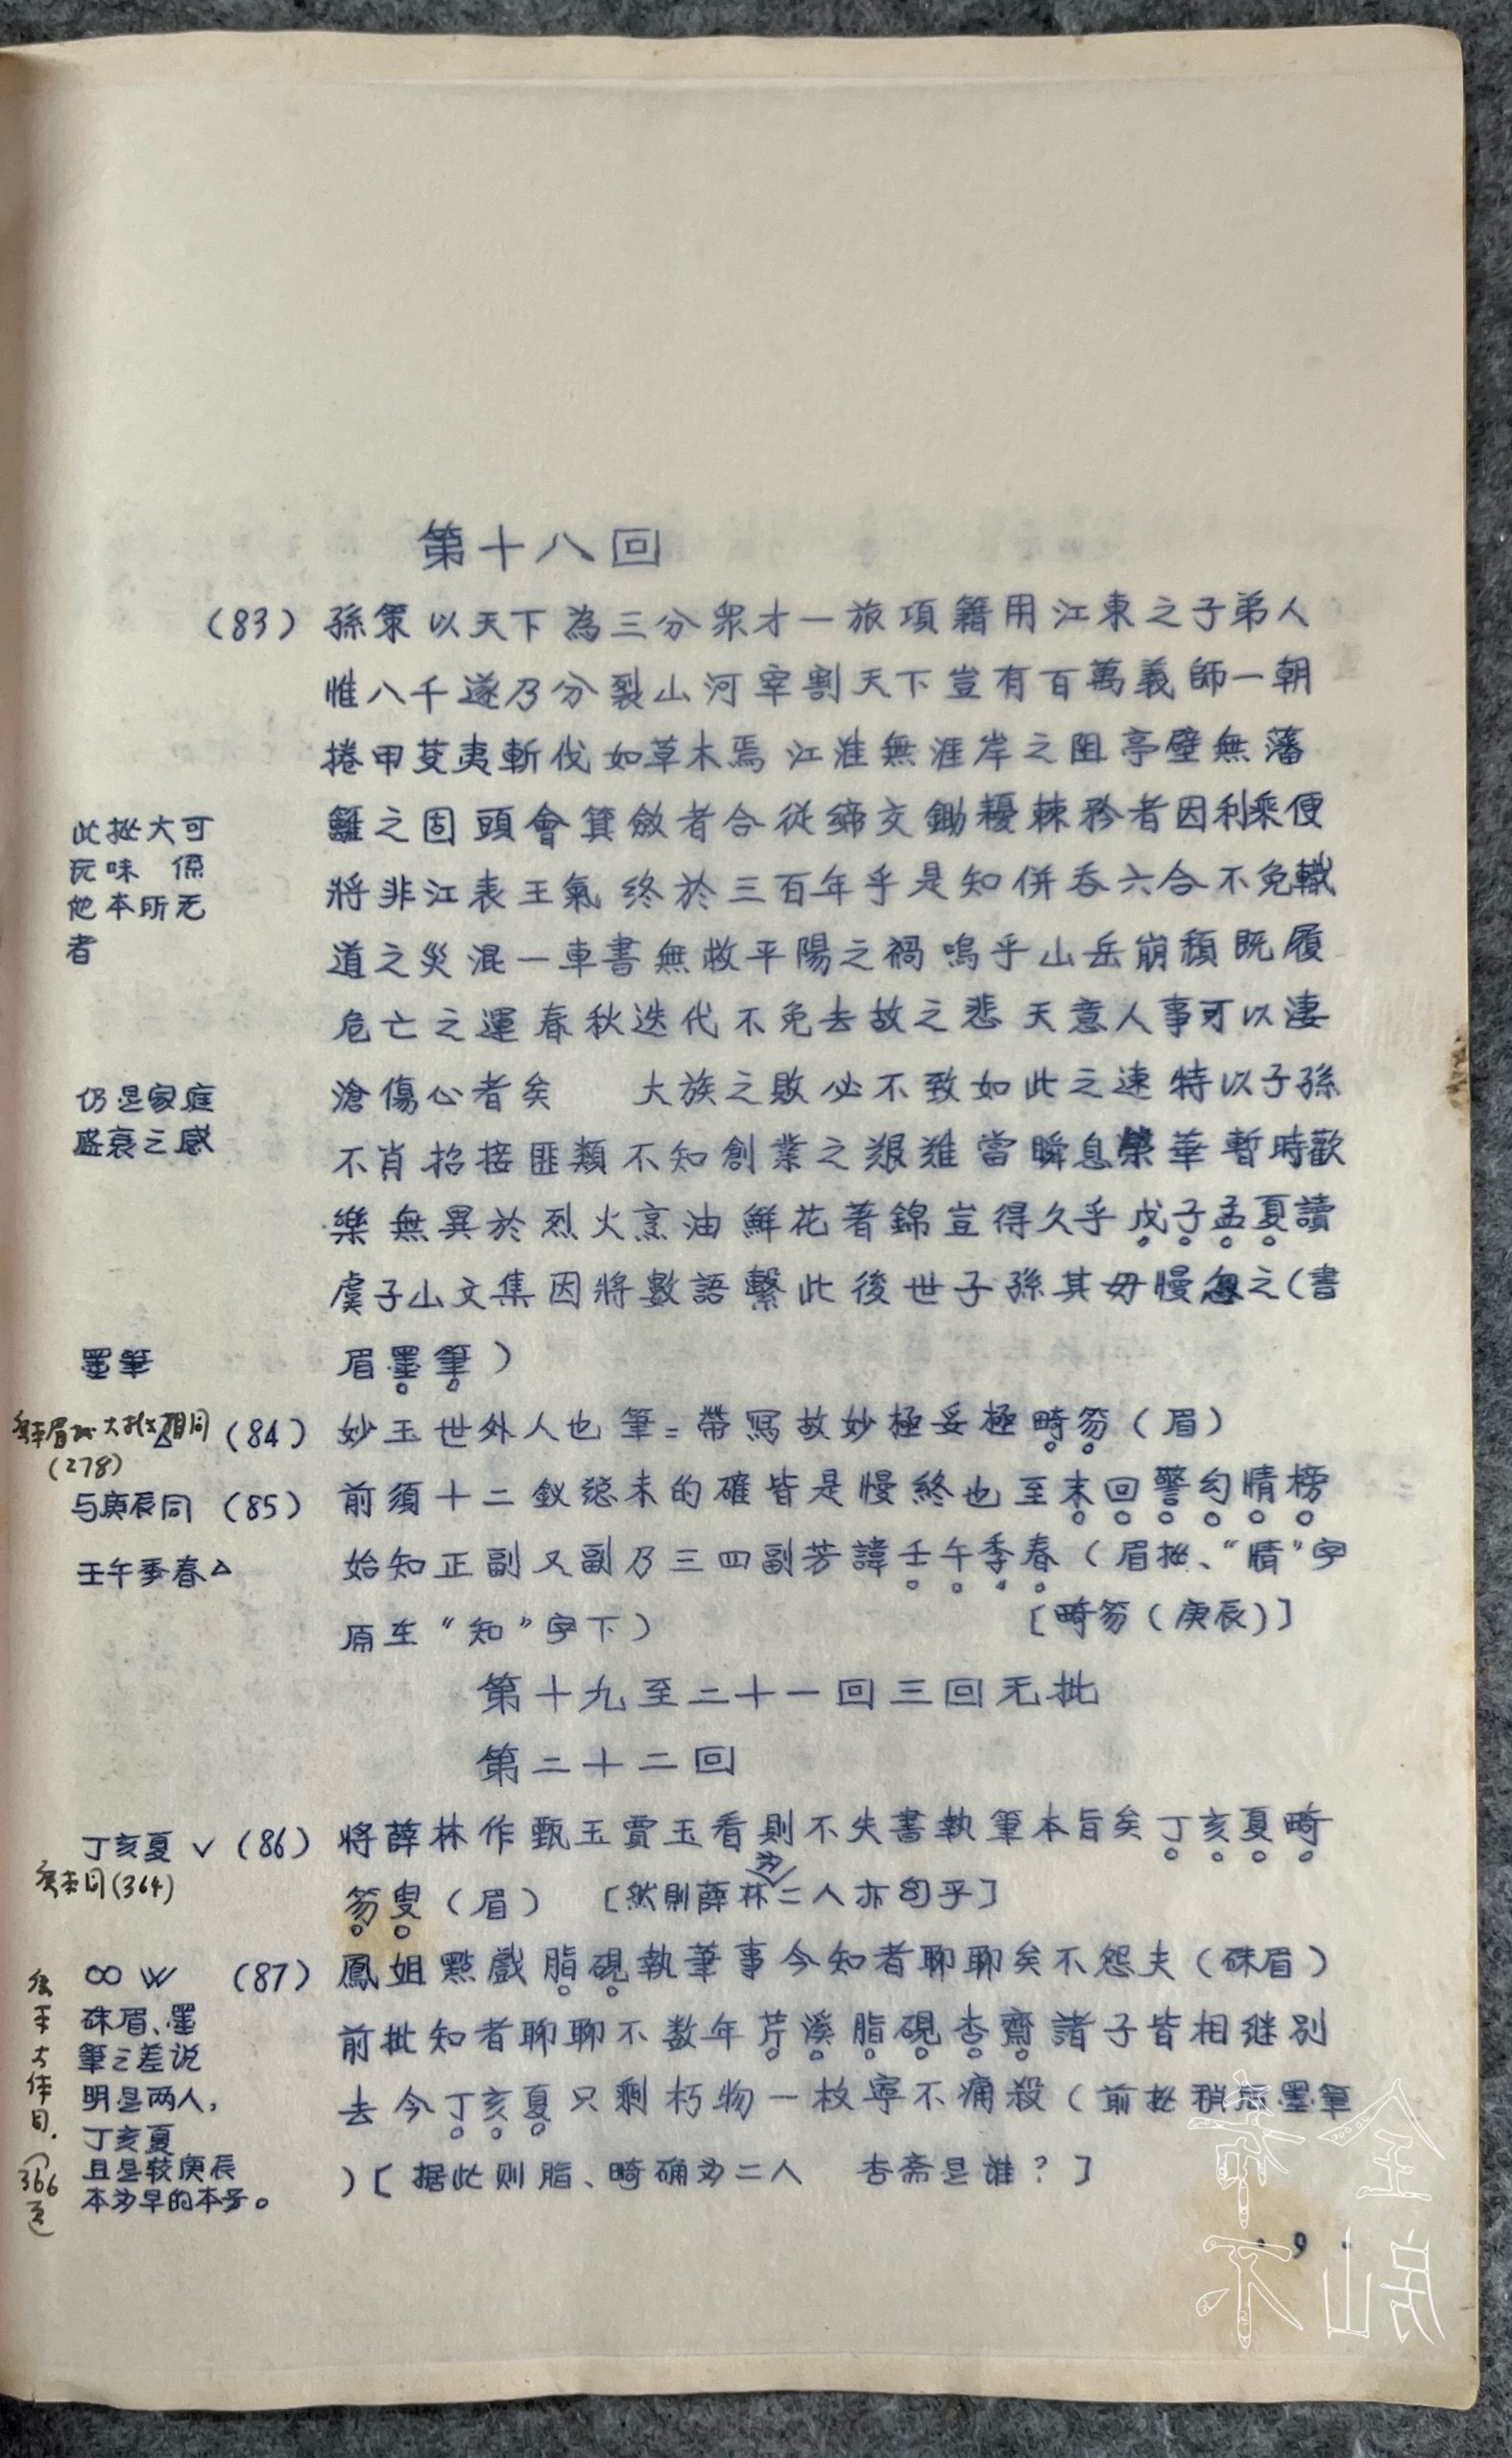 第十八回
(83) 孫策以天下為三分衆才一旅項籍用江東之子弟人
惟八千遂乃分裂山河宰割天下豈有百萬義師一朝
捲甲芟夷斬伐如草木焉江淮無涯岸之阻亭壁無藩
此批大可
玩味 係
他本所无
者
籬之固頭會箕斂者合從締交鋤耰棘矜者因利乘便
將非江表王氣終於三百年乎是知併吞六合不免軹
道之災混一車書無救平陽之禍嗚乎山岳崩頹既履
危亡之運春秋迭代不免去故之悲天意人事可以淒
仍是家庭
盛衰之感
滄傷心者矣 大族之敗必不致如此之速特以子孫
不肖招接匪類不知創業之艰难當瞬息榮華暫時歡
樂無異於烈火烹油鮮花著錦豈得久乎戊子孟夏讀
虞子山文集因將數語繫此後世子孫其毋慢忽之(書
墨筆
眉墨筆)
(278)
(84) 妙玉世外人也筆=帶寫故妙極妥極畸笏(眉)
与庚辰同 (85) 前須十二釵総未的確皆是慢終也至末回警幻情榜
壬午季春△ 始知正副又副乃三四副芳諱壬午季春(眉批、“情”字
原在“知”字下) [畸笏(庚辰)]
第十九至二十一回三回无批
第二十二回
丁亥夏 ∨ (86) 將薛林作甄玉賈玉看則不失書執筆本旨矣丁亥夏畸
(364)
笏叟(眉) [然則薛林为二人亦句乎]
∞ W (87) 鳳姐點戲脂硯執筆事今知者聊聊矣不怨夫(硃眉)
硃眉、墨
筆之差说
明是两人,
丁亥夏
且是较庚辰
本为早的本子。
前批知者聊聊不数年芹溪脂硯杏齋諸子皆相继别
去今丁亥夏只剩朽物一枚寧不痛殺(前批稍后墨筆
)[据此则脂、畸确为二人 杏斋是谁?]
·9·